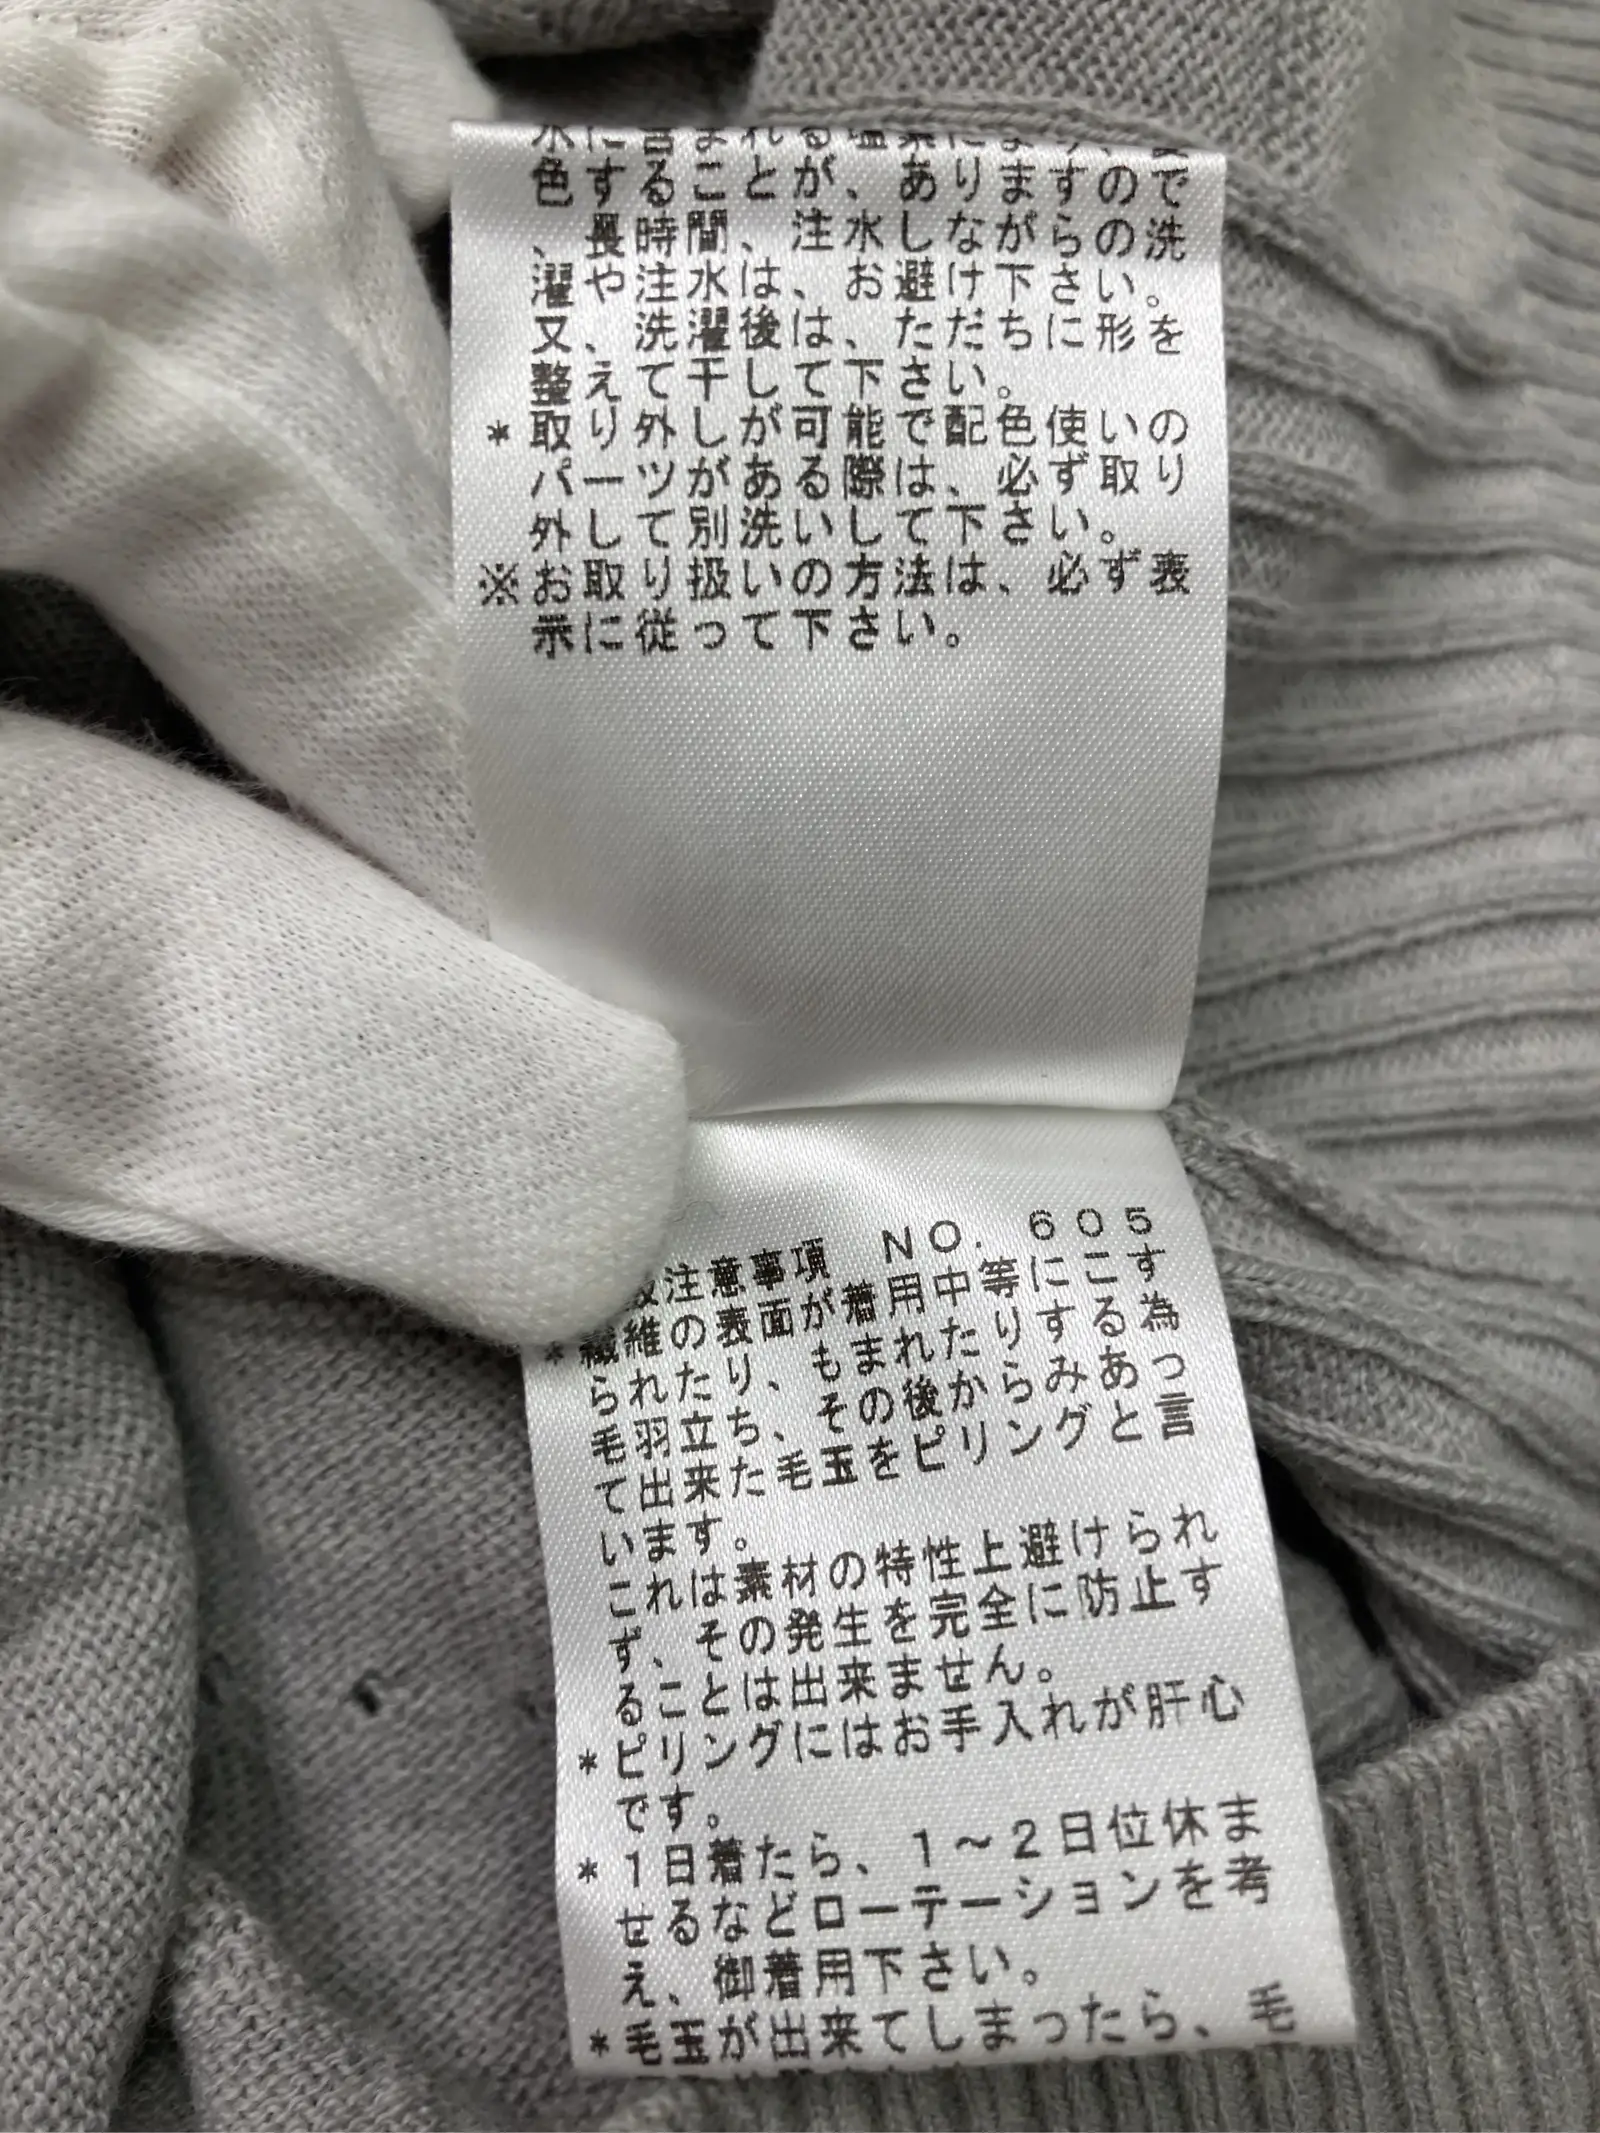 色することが、ありますので
、長時間、注水しながらの洗
濯や注水は、お避け下さい。
又、洗濯後は、ただちに形を
整えて干して下さい。
*取り外しが可能で配色使いの
パーツがある際は、必ず取り
外して別洗いして下さい。
※お取り扱いの方法は、必ず表
示に従って下さい。
注意事項 NO.605
*繊維の表面が着用中等にこす
られたり、もまれたりする為
毛羽立ち、その後からみあっ
て出来た毛玉をピリングと言
います。
これは素材の特性上避けられ
ず、その発生を完全に防止す
ることは出来ません。
*ピリングにはお手入れが肝心
です。
*1日着たら、1~2日位休ま
せるなどローテーションを考
え、御着用下さい。
*毛玉が出来てしまったら、毛